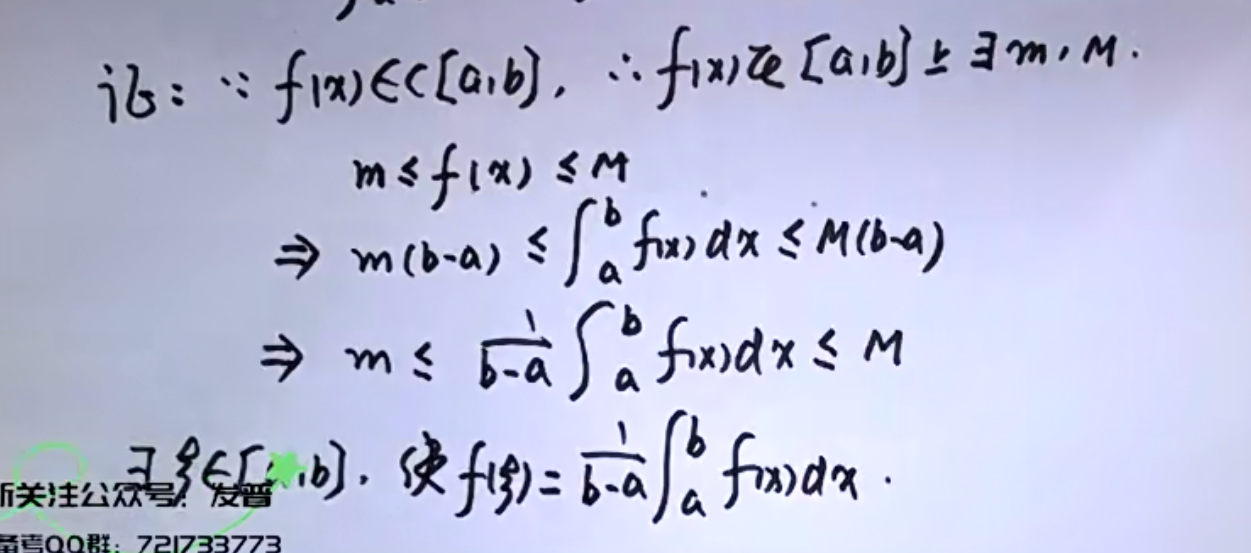 证：∵ f(x)∈C[a,b]，∴ f(x)在[a,b]上∃m,M.
m≤f(x)≤M
⇒ m(b-a)≤∫_a^b f(x)dx≤M(b-a)
⇒ m≤ 1/(b-a) ∫_a^b f(x)dx≤M
∃ξ∈[a,b]，使f(ξ)= 1/(b-a) ∫_a^b f(x)dx.
关注公众号：发普
备考QQ群：721733773